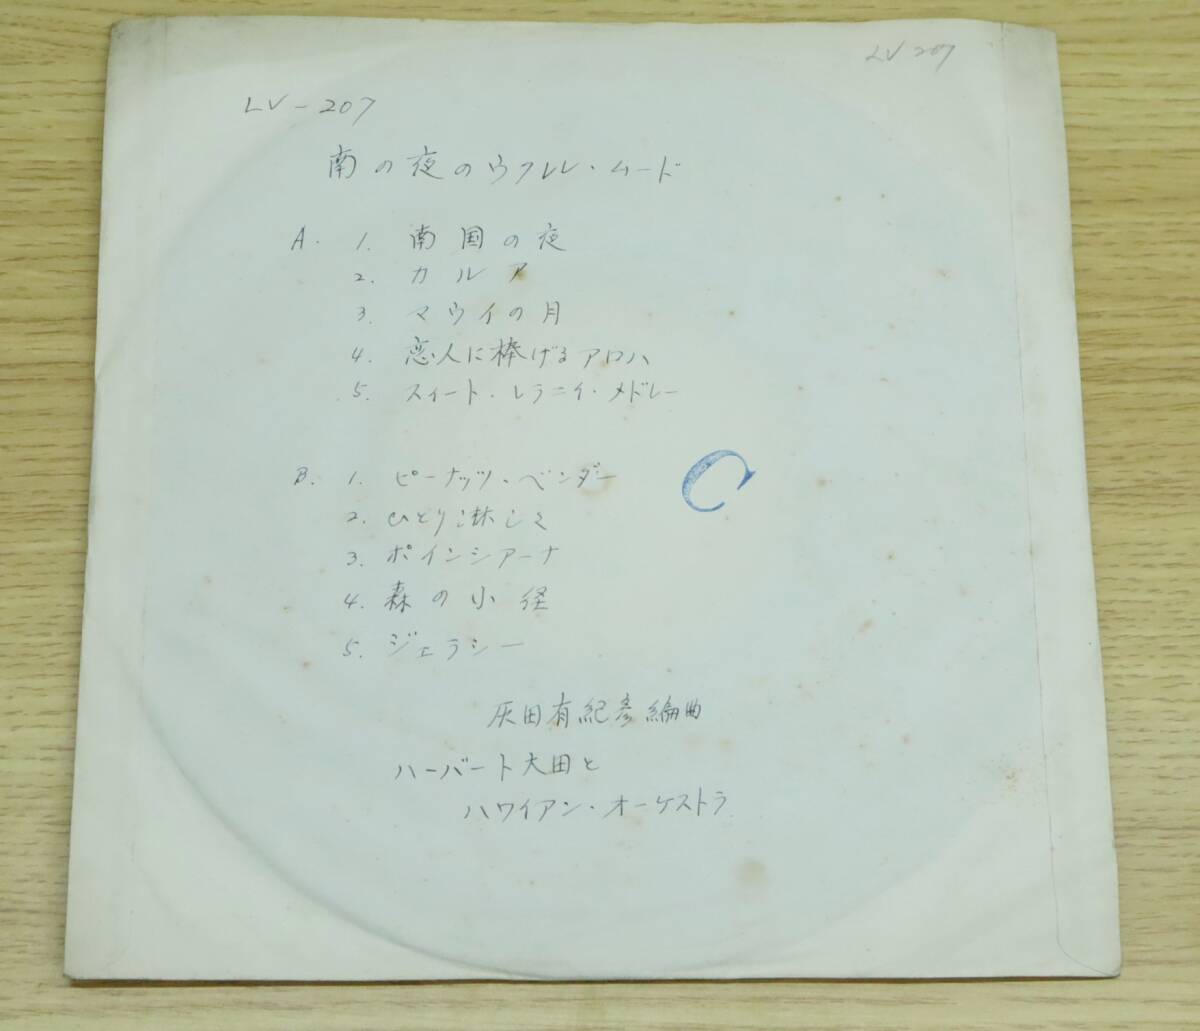 LV 207
LV-207
南の夜のウクレレ・ムード
A. 1. 南国の夜
2. カルア
3. マウイの月
4. 恋人に捧げるアロハ
5. スィート・レラニイ・メドレー
B. 1. ピーナッツ・ベンダー
2. ひとり淋しく
3. ポインシアーナ
4. 森の小径
5. ジェラシー
C
灰田有紀彦編曲
ハーバート大田と
ハワイアン・オーケストラ